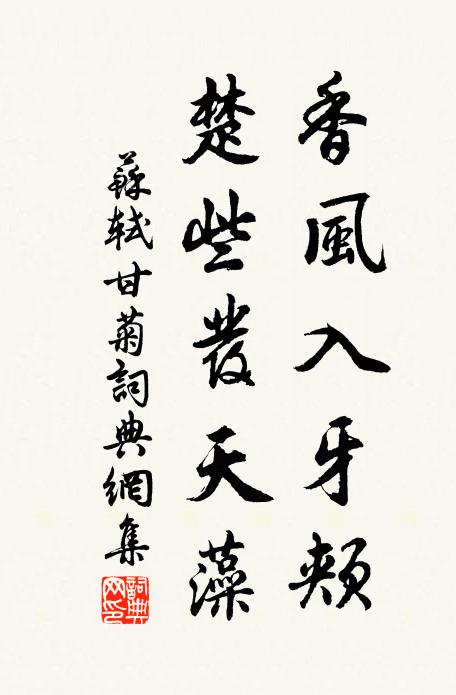 香風入牙頰
楚些發天藻
蘇軾甘菊詞典網集
詞典網印